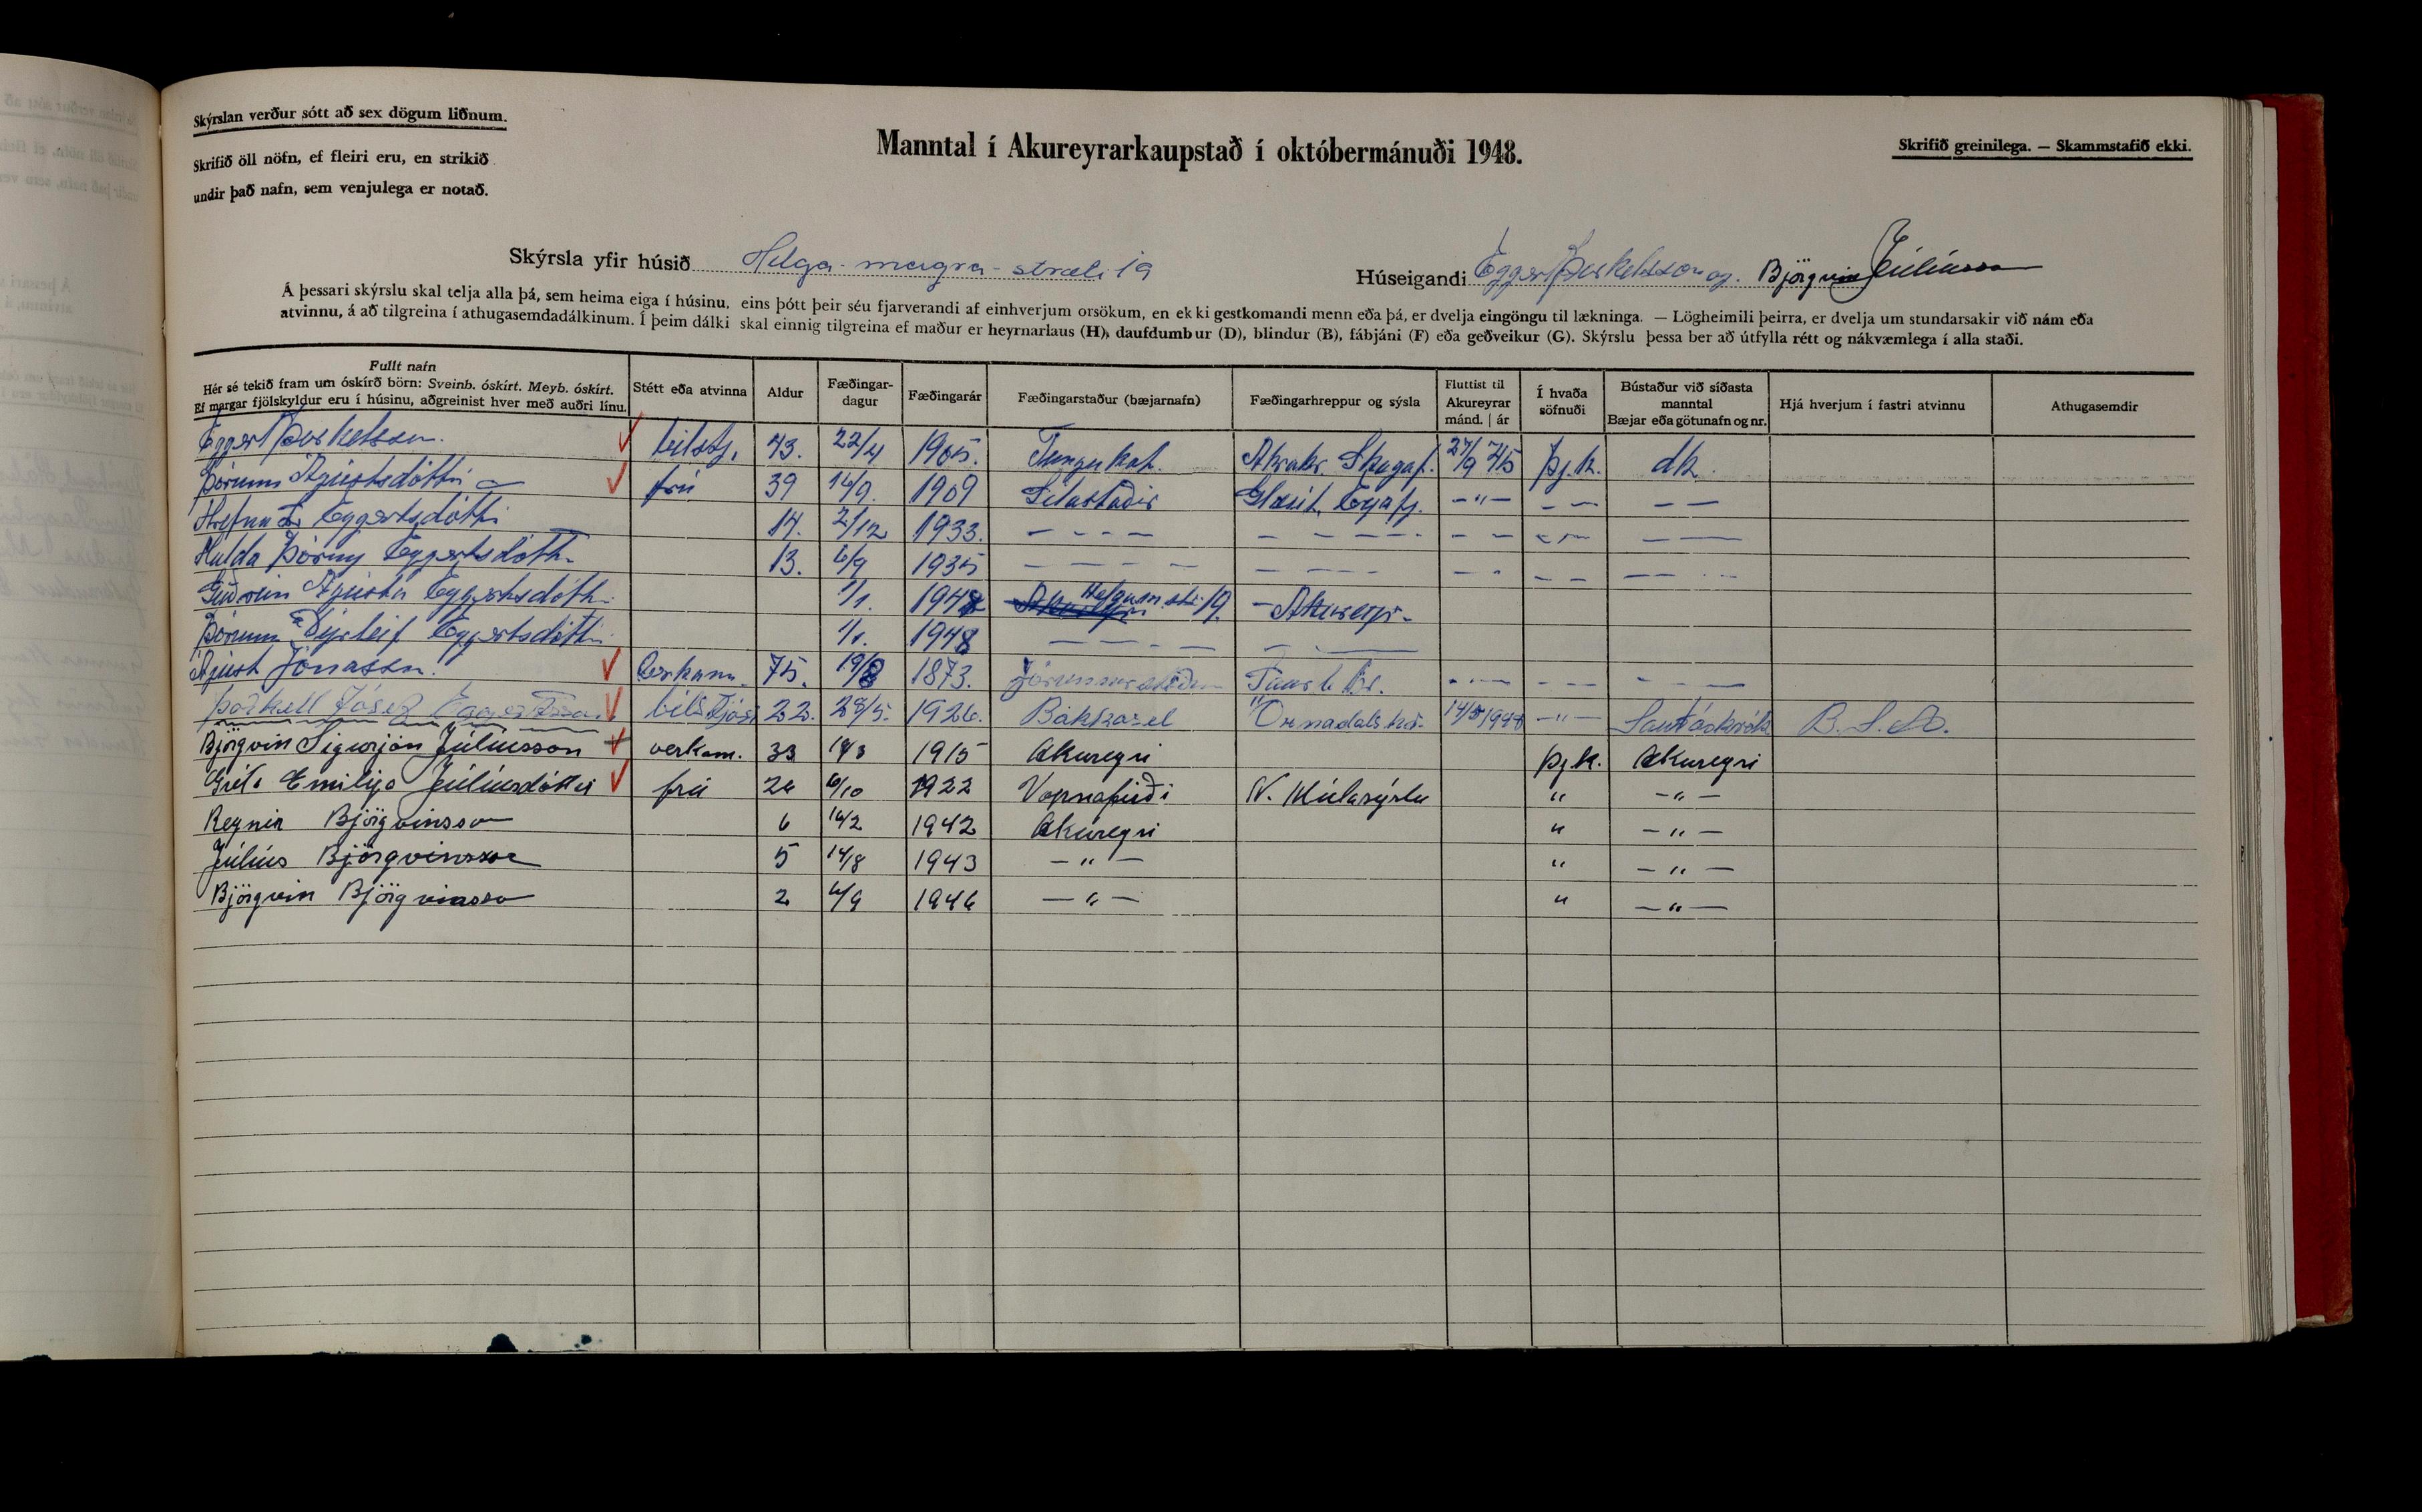 Skýrslan verður sótt að sex dögum liðnum.
Skrifið öll nöfn, ef fleiri eru, en strikið
undir það nafn, sem venjulega er notað.
Manntal í Akureyrarkaupstað í októbermánuði 1948.
Skrifið greinilega. — Skammstafið ekki.
Skýrsla yfir húsið Helga-magra-stræti 19
Húseigandi Eggert Þorkelsson og Björgvin Júlíusson
Á þessari skýrslu skal telja alla þá, sem heima eiga í húsinu, eins þótt þeir séu fjarverandi af einhverjum orsökum, en ekki gestkomandi menn eða þá, er dvelja eingöngu til lækninga. — Lögheimili þeirra, er dvelja um stundarsakir við nám eða
atvinnu, á að tilgreina í athugasemdadálkinum. Í þeim dálki skal einnig tilgreina ef maður er heyrnarlaus (H), daufdumbur (D), blindur (B), fábjáni (F) eða geðveikur (G). Skýrslu þessa ber að útfylla rétt og nákvæmlega í alla staði.
Fullt nafn
Hér sé tekið fram um óskírð börn: Sveinb. óskírt. Meyb. óskírt.
Ef margar fjölskyldur eru í húsinu, aðgreinist hver með auðri línu.
Stétt eða atvinna
Aldur
Fæðingar-
dagur
Fæðingarár
Fæðingarstaður (bæjarnafn)
Fæðingarhreppur og sýsla
Fluttist til
Akureyrar
mánd. | ár
Í hvaða
söfnuði
Bústaður við síðasta
manntal
Bæjar eða götunafn og nr.
Hjá hverjum í fastri atvinnu
Athugasemdir
Eggert Þorkelsson. bílstj. 43. 22/4 1905. Tungukot. Akrahr. Skagaf. 27/9 45 Þj.k. Ak.
Þórunn Ágústsdóttir frú 39 16/9. 1909 Sílastaðir Glæsib. Eyjafj. -"- - - - -
Hrefna Eggertsdóttir 14. 2/12 1933. - - - - - - - - - - - - - -
Hulda Þórny Eggertsdóttir 13. 6/9 1935 - - - - - - - - - - - - - -
Guðrún Ágústa Eggertsdóttir 1/1. 1948 Helgam.str. 19. - Akureyri -
Þórunn Dýrleif Eggertsdóttir 1/1. 1948 - - - - - -
Ágúst Jónasson. Verkam. 75. 19/8 1873. - - - - - - - -
Þorkell Jósef Eggertsson. bílstjóri 22. 28/5. 1926. Bakkasel Öxnadals hr. -"- Sauðárkrók B.S.A.
Björgvin Sigurjón Júlíusson verkam. 33 1915 Akureyri Þj.k. Akureyri
Gréta Emilija Júlíusdóttir frú 26 6/10 1922 Vopnafirði N. Múlasýslu " -"-
Reynir Björgvinsson 6 16/2 1942 Akureyri " -"-
Júlíus Björgvinsson 5 14/8 1943 -"- " -"-
Björgvin Björgvinsson 2 6/9 1946 -"- " -"-